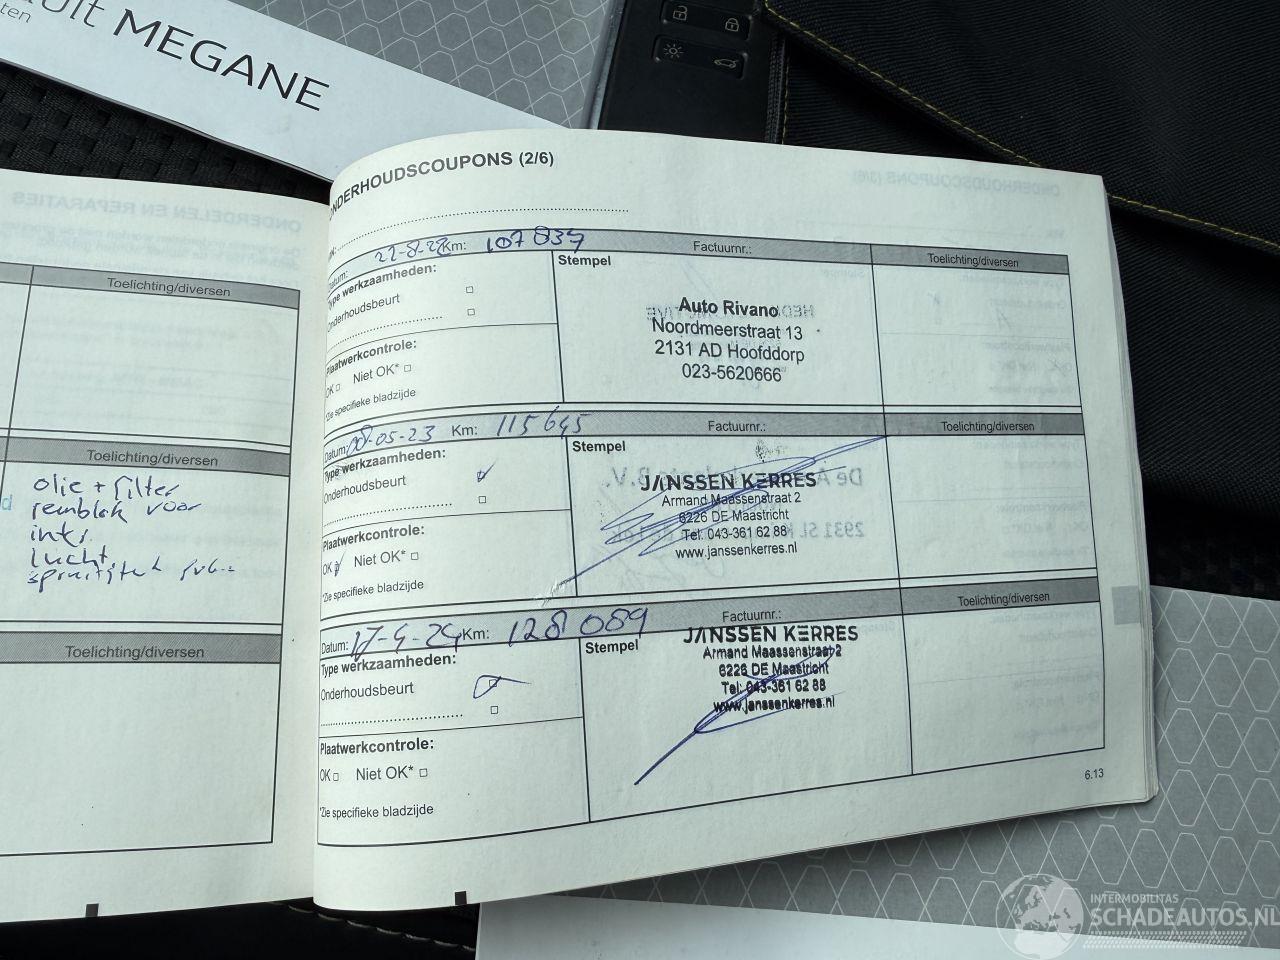 MEGANE
ten
ONDERHOUDSCOUPONS (2/6)
Datum: 22-8-22 Km: 107839 Factuurnr.: Toelichting/diversen
Type werkzaamheden:
Onderhoudsbeurt
Plaatwerkcontrole:
OK Niet OK*
*Zie specifieke bladzijde
Stempel
Auto Rivano
Noordmeerstraat 13
2131 AD Hoofddorp
023-5620666
Datum: 08-05-23 Km: 115645 Factuurnr.: Toelichting/diversen
Type werkzaamheden:
Onderhoudsbeurt
Plaatwerkcontrole:
OK Niet OK*
*Zie specifieke bladzijde
Stempel
JANSSEN KERRES
Armand Maassenstraat 2
6226 DE Maastricht
Tel: 043-361 62 88
www.janssenkerres.nl
Datum: 17-4-24 Km: 128089 Factuurnr.: Toelichting/diversen
Type werkzaamheden:
Onderhoudsbeurt
Plaatwerkcontrole:
OK Niet OK*
*Zie specifieke bladzijde
Stempel
JANSSEN KERRES
Armand Maassenstraat 2
6226 DE Maastricht
Tel: 043-361 62 88
www.janssenkerres.nl
6.13
Toelichting/diversen
Toelichting/diversen
olie + filter
remblok voor
lucht
Toelichting/diversen
INTERMOBILITAS
SCHADEAUTOS.NL